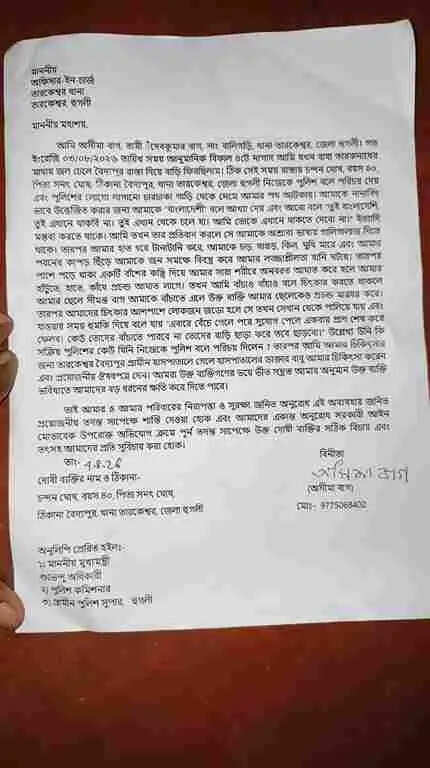 মাননীয়
অফিসার-ইন-চার্জ
তারকেশ্বর থানা
তারকেশ্বর, হুগলী
মাননীয় মহাশয়,
আমি অসীমা বাগ, স্বামী দেবকুমার বাগ, সাং বালিগড়ি, থানা তারকেশ্বর, জেলা হুগলী। গত
ইংরেজি তারিখ সময় আনুমানিক বিকাল ৩টে নাগাদ আমি যখন বাবা তারকনাথের
মাথায় জল ঢেলে বৈদ্যপুর রাস্তা দিয়ে বাড়ি ফিরছিলাম। ঠিক সেই সময় রাস্তায় চন্দন ঘোষ, বয়স ৪০,
পিতা সনৎ ঘোষ, ঠিকানা বৈদ্যপুর, থানা তারকেশ্বর, জেলা হুগলী নিজেকে পুলিশ বলে পরিচয় দেয়
এবং পুলিশের লোগো লাগানো চারচাকা গাড়ি থেকে নেমে আমার পথ আটকায়। আমাকে নানাবিধ
ভাবে উত্তেজিত করার জন্য আমাকে "বাংলাদেশী" বলে আখ্যা দেয় এবং আরো বলে "তুই বাংলাদেশি,
তুই এখানে থাকবি না। তুই এখান থেকে চলে যা। আমি তোকে এখানে থাকতে দেবো না।" ইত্যাদি
মন্তব্য করতে থাকে। আমি তখন তার প্রতিবাদ করলে সে আমাকে অশ্রাব্য ভাষায় গালিগালাজ দিতে
থাকে। তারপর আমার হাত ধরে টানাটানি করে, আমাকে চড় থাপ্পড়, কিল, ঘুষি মারে এবং আমার
পরনের কাপড় ছিঁড়ে আমাকে জন সমক্ষে বিবস্ত্র করে আমার লজ্জাশ্লীলতা হানি ঘটায়। তারপর
পাশে পড়ে থাকা একটি বাঁশের কঞ্চি দিয়ে আমার সারা শরীরে অনবরত আঘাত করে হলে আমার
হাঁটুতে, হাতে, কাঁধে প্রচন্ড আঘাত লাগে। তখন আমি বাঁচাও বাঁচাও বলে চিৎকার করতে থাকলে
আমার ছেলে শ্রীমন্ত বাগ আমাকে বাঁচাতে এলে উক্ত ব্যক্তি আমার ছেলেকেও প্রচন্ড মারধর করে।
তারপর আমাদের চিৎকার আশপাশে লোকজন জড়ো হলে সে তখন সেখান থেকে পালিয়ে যায় এবং
যাওয়ার সময় হুমকি দিয়ে বলে যায় 'এবারে বেঁচে গেলে পরে সুযোগ পেলে একবার প্রাণে শেষ করে
ফেলব। কেউ তোদের বাঁচাতে পারবে না তোদের বাড়ি ছাড়া করে তবে ছাড়বো।" উল্লেখ্য উনি কি
সত্যিই পুলিশের কেউ যিনি নিজেকে পুলিশ বলে পরিচয় দিলেন। তারপর আমি আমার চিকিৎসার
জন্য তারকেশ্বর বৈদ্যপুর গ্রামীন হাসপাতালে গেলে হাসপাতালের ডাক্তার বাবু আমার চিকিৎসা করেন
এবং প্রয়োজনীয় ঔষধপত্র দেন। আমরা উক্ত ব্যক্তিগণের ভয়ে ভীত সন্ত্রস্ত আমার অনুমান উক্ত ব্যক্তি
ভবিষ্যতে আমাদের বড় ধরনের ক্ষতি করে দিতে পারে।
তাই আমার ও আমার পরিবারের নিরাপত্তা ও সুরক্ষা জনিত অনুরোধ এই অবস্থায় জানিত
প্রয়োজনীয় তদন্ত সাপেক্ষে শাস্তি দেওয়া হোক এবং আমাদের একান্ত অনুরোধ সরকারী আইন
মোতাবেক উপরোক্ত অভিযোগ ক্রমে পূর্ণ তদন্ত সাপেক্ষে উক্ত দোষী ব্যক্তির সঠিক বিচার এবং
তৎসহ আমাদের প্রতি সুবিচার করা হোক।
তাং- 9.6.26
বিনীতা
অসীমা বাগ
(অসীমা বাগ)
মোঃ- 9775068402
দোষী ব্যক্তির নাম ও ঠিকানা-
চন্দন ঘোষ, বয়স ৪০, পিতা সনৎ ঘোষ,
ঠিকানা বৈদ্যপুর, থানা তারকেশ্বর, জেলা হুগলী
অনুলিপি প্রেরিত হইল:-
১) মাননীয় মুখ্যমন্ত্রী
শুভেন্দু অধিকারী
২) পুলিশ কমিশনার
৩) গ্রামীন পুলিশ সুপার, হুগলী